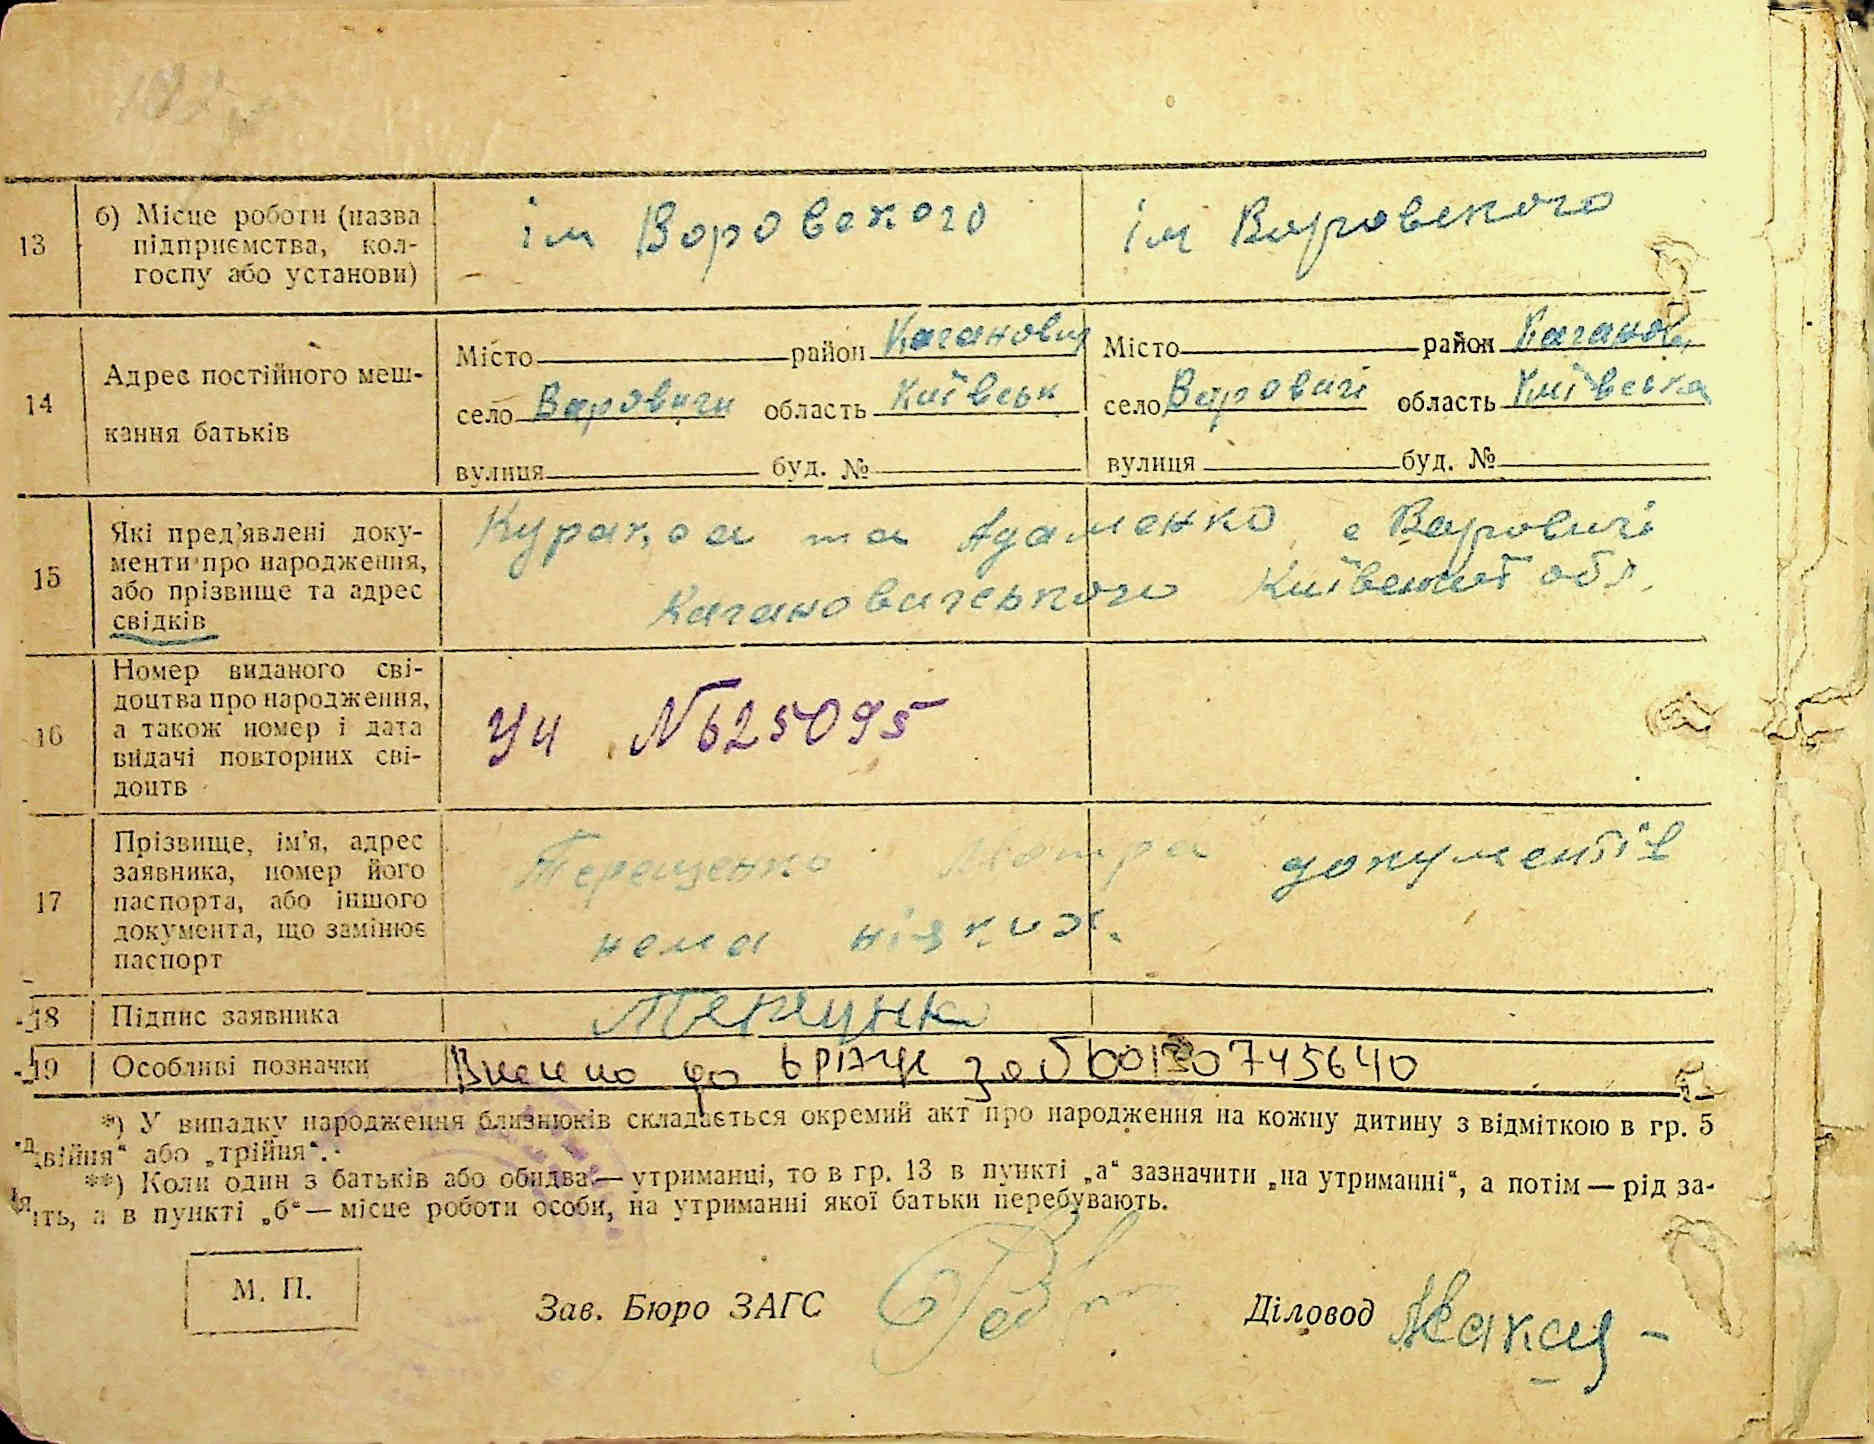 13 б) Місце роботи (назва підприємства, кол-
госпу або установи)
ім Воровского ім Воровского
14 Адрес постійного меш-
кання батьків
Місто район Каганович Місто район Каганов
село Варовичи область Київськ село Варовичі область Київська
вулиця буд. № вулиця буд. №
15 Які пред'явлені доку-
менти про народження,
або прізвище та адрес
свідків
та Адаменко с Варовичі
Кагановичського Київської обл.
16 Номер виданого сві-
доцтва про народження,
а також номер і дата
видачі повторних сві-
доцтв
УЧ №625095
17 Прізвище, ім'я, адрес
заявника, номер його
паспорта, або іншого
документа, що замінює
паспорт
Терещенко Мотра документів
нема ніяких.
18 Підпис заявника
19 Особливі позначки Внесено до за №00130745640
*) У випадку народження близнюків складається окремий акт про народження на кожну дитину з відміткою в гр. 5
„двійня“ або „трійня“.
**) Коли один з батьків або обидва — утриманці, то в гр. 13 в пункті „а“ зазначити „на утриманні“, а потім — рід за-
ять, а в пункті „б“ — місце роботи особи, на утриманні якої батьки перебувають.
М. П.
Зав. Бюро ЗАГС Діловод